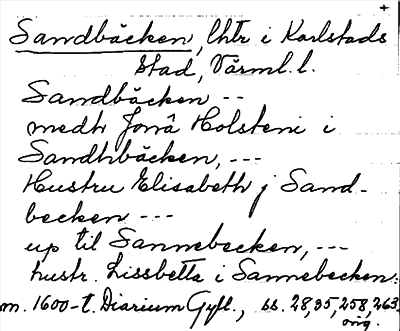 +
Sandbäcken, lhtr i Karlstads
stad, Värml. l.
Sandbäcken --
medh Jonä Holsteni i
Sandhbäcken, ---
Hustru Elisabeth j Sand-
becken ---
up til Sannebecken, ---
hustr. Lissbetta i Sannebecken.
m. 1600-t. Diarium Gyll., ss. 28, 95, 258, 263.
orig.